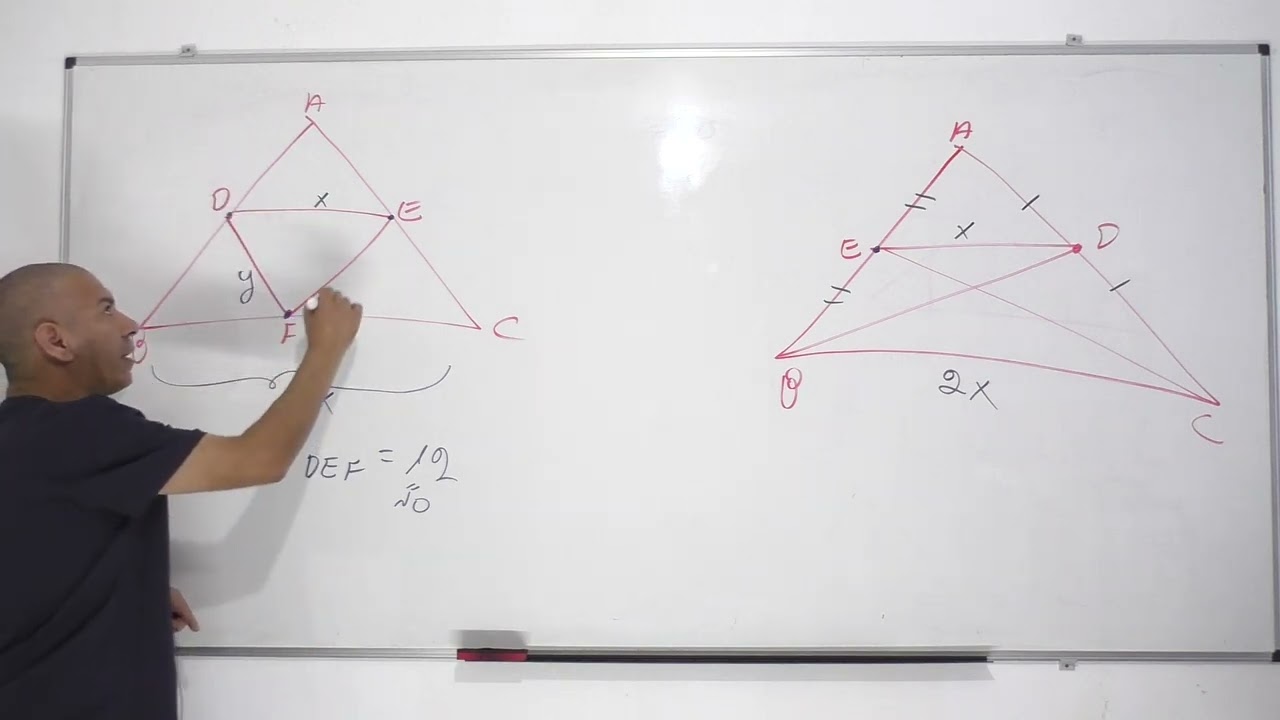 A
D
x
E
y
F
C
DEF = 12
A
E
x
D
B
2x
C